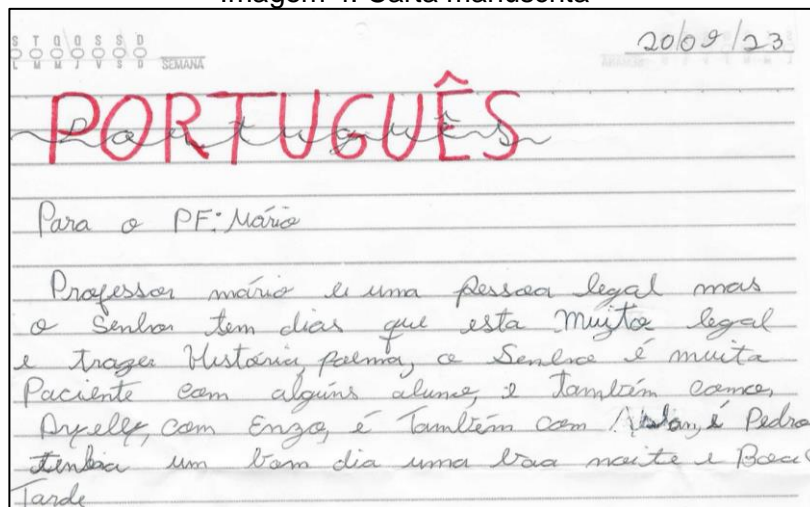 Imagem 4: Carta manuscrita
S T Q Q S S D
L M M J V S D SEMANA
20/09/23
PORTUGUÊS
Português
Para o PF: Mário
Professor mário e uma pessoa legal mas
o Senhor tem dias que esta Muito legal
e trazer História, poema, o Senhor é muita
Paciente com alguns aluno, e também comco,
com Enzo, é Também com é Pedro
tenha um bom dia uma boa noite e Boa
Tarde